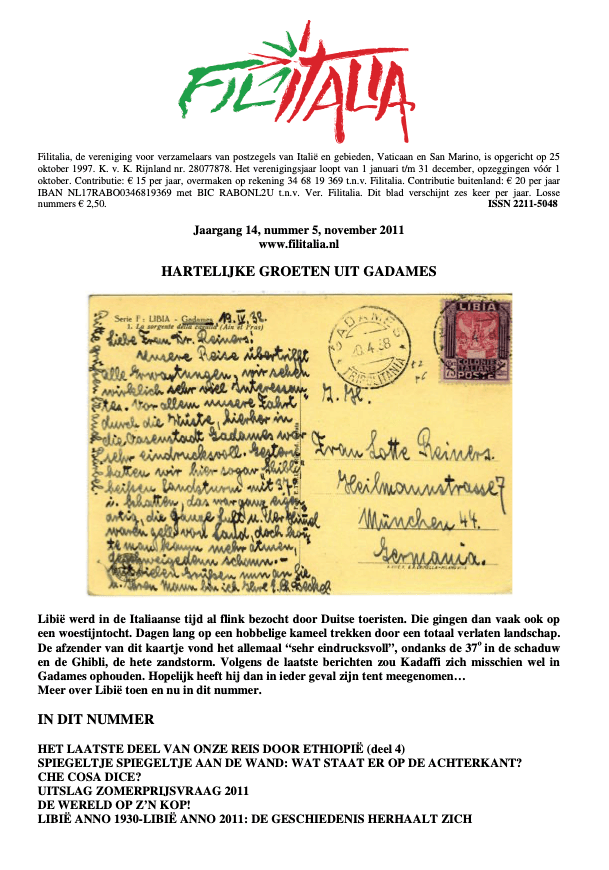 FILITALIA
Filitalia, de vereniging voor verzamelaars van postzegels van Italië en gebieden, Vaticaan en San Marino, is opgericht op 25
oktober 1997. K. v. K. Rijnland nr. 28077878. Het verenigingsjaar loopt van 1 januari t/m 31 december, opzeggingen vóór 1
oktober. Contributie: € 15 per jaar, overmaken op rekening 34 68 19 369 t.n.v. Filitalia. Contributie buitenland: € 20 per jaar
IBAN NL17RABO0346819369 met BIC RABONL2U t.n.v. Ver. Filitalia. Dit blad verschijnt zes keer per jaar. Losse
nummers € 2,50. ISSN 2211-5048
Jaargang 14, nummer 5, november 2011
www.filitalia.nl
HARTELIJKE GROETEN UIT GADAMES
Serie F: LIBIA - Gadames 19.IV.38.
1. La sorgente della (Ain el Fras)
Liebe Frau Dr. Reiners.
Unsere Reise übertrifft
alle Erwartungen, wir sehen
wirklich sehr viel Interessan
tes. Vor allem unsere Fahrt
durch die Wüste, hierher in
die Oasenstadt Gadames war
sehr eindrucksvoll. Gestern
hatten wir hier sogar Ghibli
heißen Sandsturm mit 37°
i. Schatten, das war ganz eigen
artig, die ganze Luft u. der Mund
waren voll Sand, doch
te man kaum mehr atmen,
geschweige denn sehen.-
GADAMES
TRIPOLITANIA
LIBIA
COLONIE
ITALIANE
POSTE
Frau Lotte Reiners.
Heilmannstrasse 7
München 44.
Germania.
Libië werd in de Italiaanse tijd al flink bezocht door Duitse toeristen. Die gingen dan vaak ook op
een woestijntocht. Dagen lang op een hobbelige kameel trekken door een totaal verlaten landschap.
De afzender van dit kaartje vond het allemaal “sehr eindrucksvoll”, ondanks de 37° in de schaduw
en de Ghibli, de hete zandstorm. Volgens de laatste berichten zou Kadaffi zich misschien wel in
Gadames ophouden. Hopelijk heeft hij dan in ieder geval zijn tent meegenomen…
Meer over Libië toen en nu in dit nummer.
IN DIT NUMMER
HET LAATSTE DEEL VAN ONZE REIS DOOR ETHIOPIË (deel 4)
SPIEGELTJE SPIEGELTJE AAN DE WAND: WAT STAAT ER OP DE ACHTERKANT?
CHE COSA DICE?
UITSLAG ZOMERPRIJSVRAAG 2011
DE WERELD OP Z’N KOP!
LIBIË ANNO 1930-LIBIË ANNO 2011: DE GESCHIEDENIS HERHAALT ZICH